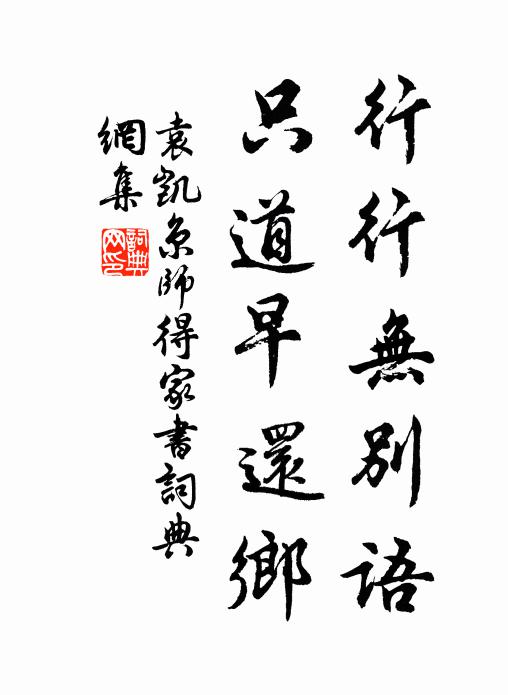 行行無別語
只道早還鄉
袁凱京師得家書詞典
網集
詞典
网印